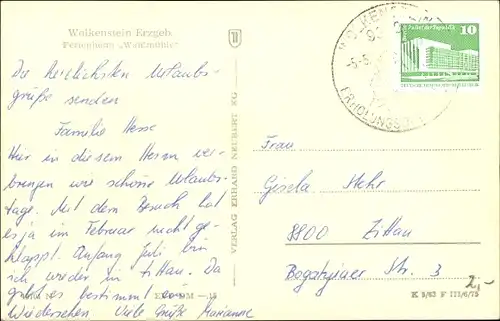 Wolkenstein Erzgeb.
Ferienheim „Waldmühle"
Die herzlichsten Urlaubs-
grüße senden
Familie Hesse
Hier in diesem Heim ver-
bringen wir schöne Urlaubs-
tage. Mit dem Besuch hat
es ja im Februar nicht ge-
klappt. Anfang Juli bin
ich wieder in Zittau. Da
gibt es bestimmt ein
Wiedersehen. Viele Grüße Marianne
VERLAG ERHARD NEUBERT KG
WOLKENSTEIN
ERHOLUNGS
10
Frau
Gisela Mehr
8800 Zittau
Str. 3
2,-
K 5/63 F III/6/75